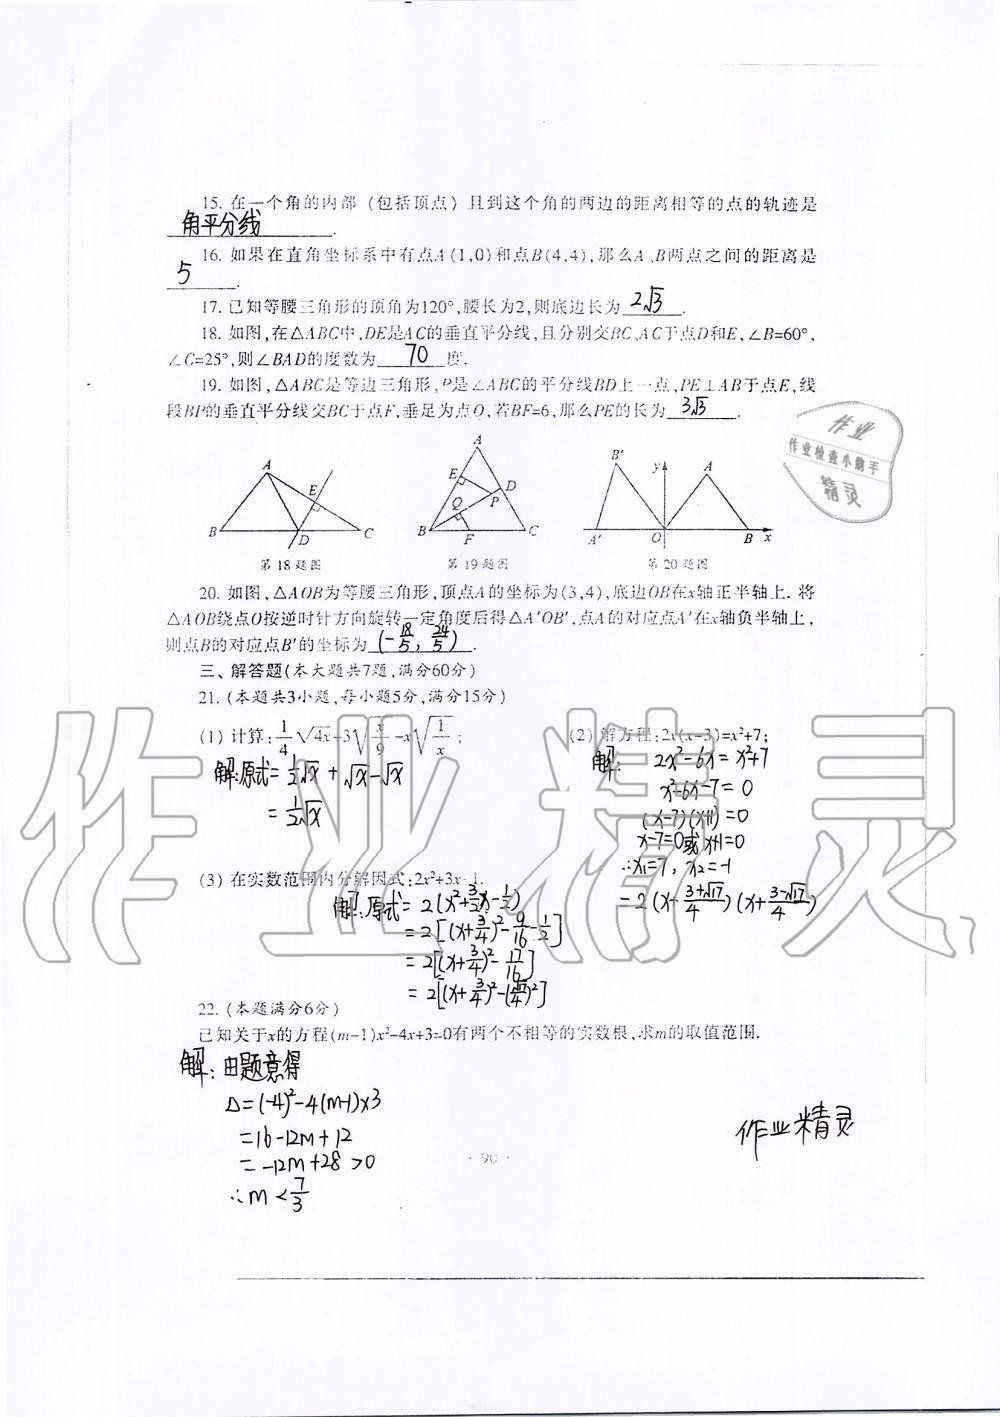 15. 在一个角的内部（包括顶点）且到这个角的两边的距离相等的点的轨迹是
角平分线.
16. 如果在直角坐标系中有点A(1,0)和点B(4,4),那么A、B两点之间的距离是
5.
17. 已知等腰三角形的顶角为120°,腰长为2,则底边长为 2√3.
18. 如图,在△ABC中,DE是AC的垂直平分线,且分别交BC、AC于点D和E,∠B=60°,
∠C=25°,则∠BAD的度数为 70 度.
19. 如图,△ABC是等边三角形,P是∠ABC的平分线BD上一点,PE⊥AB于点E,线
段BP的垂直平分线交BC于点F,垂足为点Q,若BF=6,那么PE的长为 3√3.
A
B
C
D
E
第18题图
A
B
C
D
E
P
Q
F
第19题图
B′
y
A
A′
O
B
x
第20题图
20. 如图,△AOB为等腰三角形,顶点A的坐标为(3,4),底边OB在x轴正半轴上. 将
△AOB绕点O按逆时针方向旋转一定角度后得△A′OB′,点A的对应点A′在x轴负半轴上,
则点B的对应点B′的坐标为 (-18/5, 24/5).
三、解答题(本大题共7题,满分60分)
21. (本题共3小题,每小题5分,满分15分)
(1) 计算: 1/4√4x+3√x/9-x√1/x;
解:原式=1/2√x+√x-√x
=1/2√x
(2) 解方程:2x(x-3)=x²+7;
解: 2x²-6x=x²+7
x²-6x-7=0
(x-7)(x+1)=0
x-7=0或x+1=0
∴x₁=7, x₂=-1
(3) 在实数范围内分解因式:2x²+3x-1.
解:原式=2(x²+3/2x-1/2)
=2[(x+3/4)²-9/16-1/2]
=2[(x+3/4)²-17/16]
=2[(x+3/4)²-(√17/4)²]
=2(x+(3+√17)/4)(x+(3-√17)/4)
22. (本题满分6分)
已知关于x的方程(m-1)x²-4x+3=0有两个不相等的实数根,求m的取值范围.
解:由题意得
Δ=(-4)²-4(m-1)×3
=16-12m+12
=-12m+28>0
∴m<7/3
作业精灵
· 90 ·
作业
作业检查小助手
精灵
作业精灵